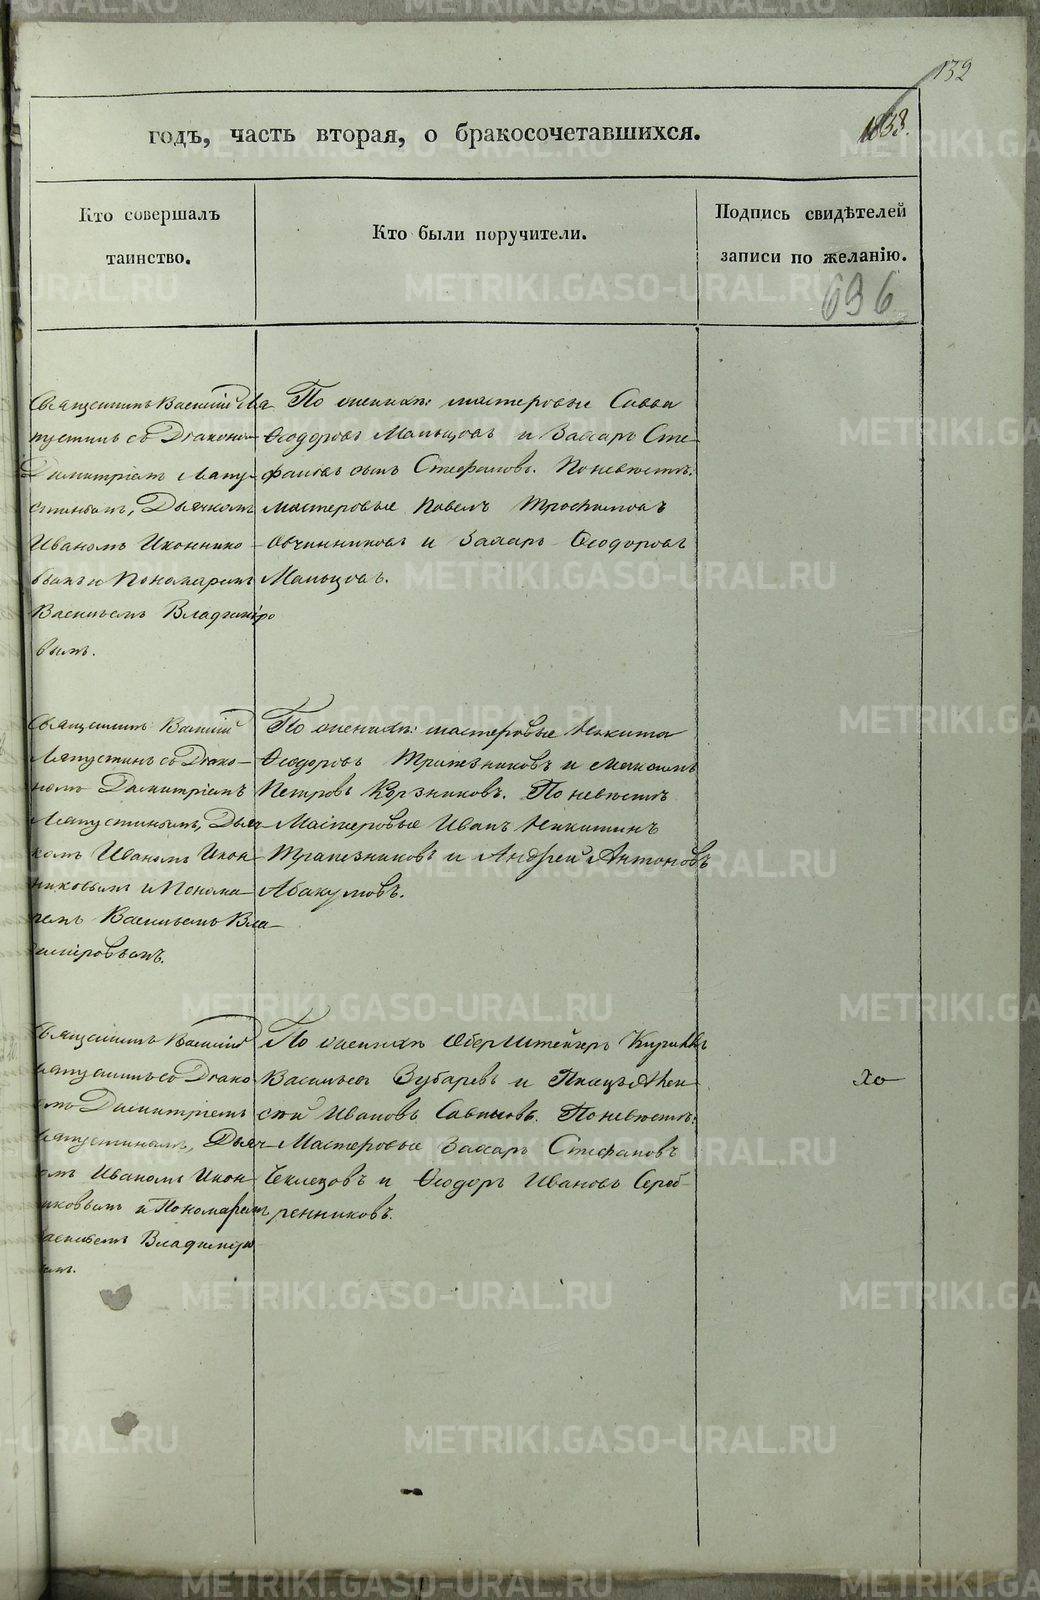 132
1838.
годъ, часть вторая, о бракосочетавшихся.
Кто совершалъ
таинство.
Кто были поручители.
Подпись свидѣтелей
записи по желанію.
696
Священникъ Василій Ля
пустинъ съ Діакономъ
Димитріемъ Ляпу-
стинымъ, Дьячкомъ
Иваномъ Иконнико-
вымъ и Пономаремъ
Васильемъ Владиміро
вымъ.
По женихѣ: мастеровые Савва
Ѳеодоровъ Мальцовъ и Захаръ Сте-
фановъ сынъ Стефановъ. По невѣстѣ:
мастеровые Павелъ Трофимовъ
Овчинниковъ и Захаръ Ѳеодоровъ
Мальцовъ.
Священникъ Василій
Ляпустинъ съ Діако-
номъ Димитріемъ
Ляпустинымъ, Дьяч-
комъ Иваномъ Икон-
никовымъ и Понома-
ремъ Васильемъ Вла-
диміровымъ.
По женихѣ: мастеровые Никита
Ѳеодоровъ Трапезниковъ и Максимъ
Петровъ. По невѣстѣ
Мастеровые Иванъ Никитинъ
Трапезниковъ и Андрей Антоновъ
Абакумовъ.
Священникъ Василій
Ляпустинъ съ Діако
номъ Димитріемъ
Ляпустинымъ, Дьяч-
комъ Иваномъ Икон-
никовымъ и Пономаремъ
Васильемъ Владиміро
вымъ.
По женихѣ Оберъ Штейгеръ Кириллъ
Васильевъ Зубаревъ и Писецъ Алек-
сѣй Ивановъ. По невѣстѣ:
Мастеровые Захаръ Стефановъ
и Ѳеодоръ Ивановъ Сереб-
ренниковъ.
METRIKI.GASO-URAL.RU